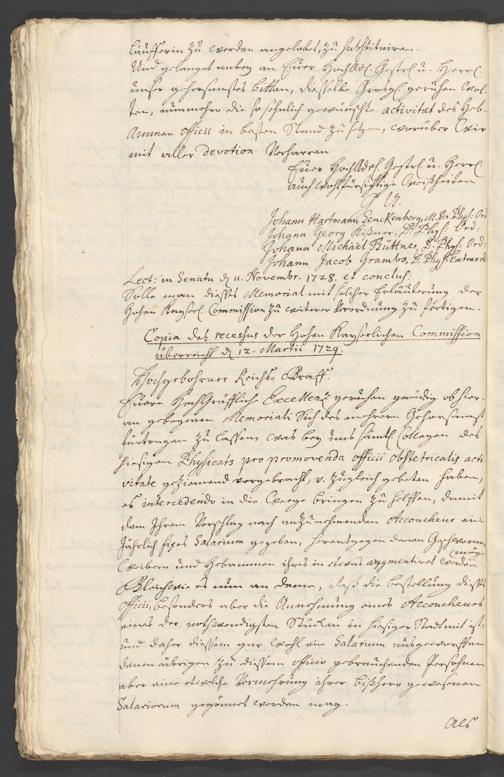 läufferin zu werden angelobet, zu substituiren.
Und gelanget anbey an Euer HochAdel. Gestrl. u. Herrl.
unser gehorsamstes bitten, dieselbe Großg. geruhen wol-
ten, nunmehro die so sehnlich gewünscht activitat des Heb-
Ammen officii in besten Stand zu setzen, worüber Wir
mit aller devotion Verharren
Euer HochAdel. Gestrl. u. Herrl.
auch wohlfürsichtige Weißheiten
Johann Hartmann Senckenberg, M. Dr. Phys: Ord
Johann Georg Kißner, Dr. Phys. Ord:
Johann Michael Büttner, D. Phys. Ord:
Johann Jacob Grambs, D. Phys. Extraord
Lect: in Senatu d. 11. Novembr. 1728. et conclus:
Solle man dieses Memorial mit solcher Erläuterung der
Hohen Kayserl. Commission zu weiterer Verordnung zu fertigen.
Copia des recessus der Hohen Kayserlichen Commission
überreicht d. 12. Martii 1729.
Hochgebohrner Reichs Graff.
Euere HochGräffliche Excellenz geruhen gnädig ob hier-
an gebogenen Memoriali Sich des mehrern Gehorsamst
fürtragen zu lassen, was bey uns sämtl. Collegen des
hiesigen Physicats pro promovenda officii obstetricalis acti
vitate geziemend vorgebracht, u. zugleich gebeten haben,
es intercedendo in die Wege bringen zu helffen, damit
dem Ihrem Vorschlag nach anzunehmenden Accoucheur ein
Jährlich fixes Salarium gegeben, herentgegen denen Geschwornen
Weibern und Hebammen ihres in etwas augmentiret werden möge
Gleichwie es nun an deme, daß die bestellung dieses
officii, besonders aber die Annehmung eines Accoucheurs
eines der nothwendigsten Stücken in hiesiger Stadt mit ist,
und daher diesem gar wohl ein Salarium ausgeworffen
denen übrigen zu diesem officio gebrauchenden Persohnen
aber eine etwelche Vermehrung ihrer bißhero gewesenen
Salariorum gegönnet werden mag.
Als